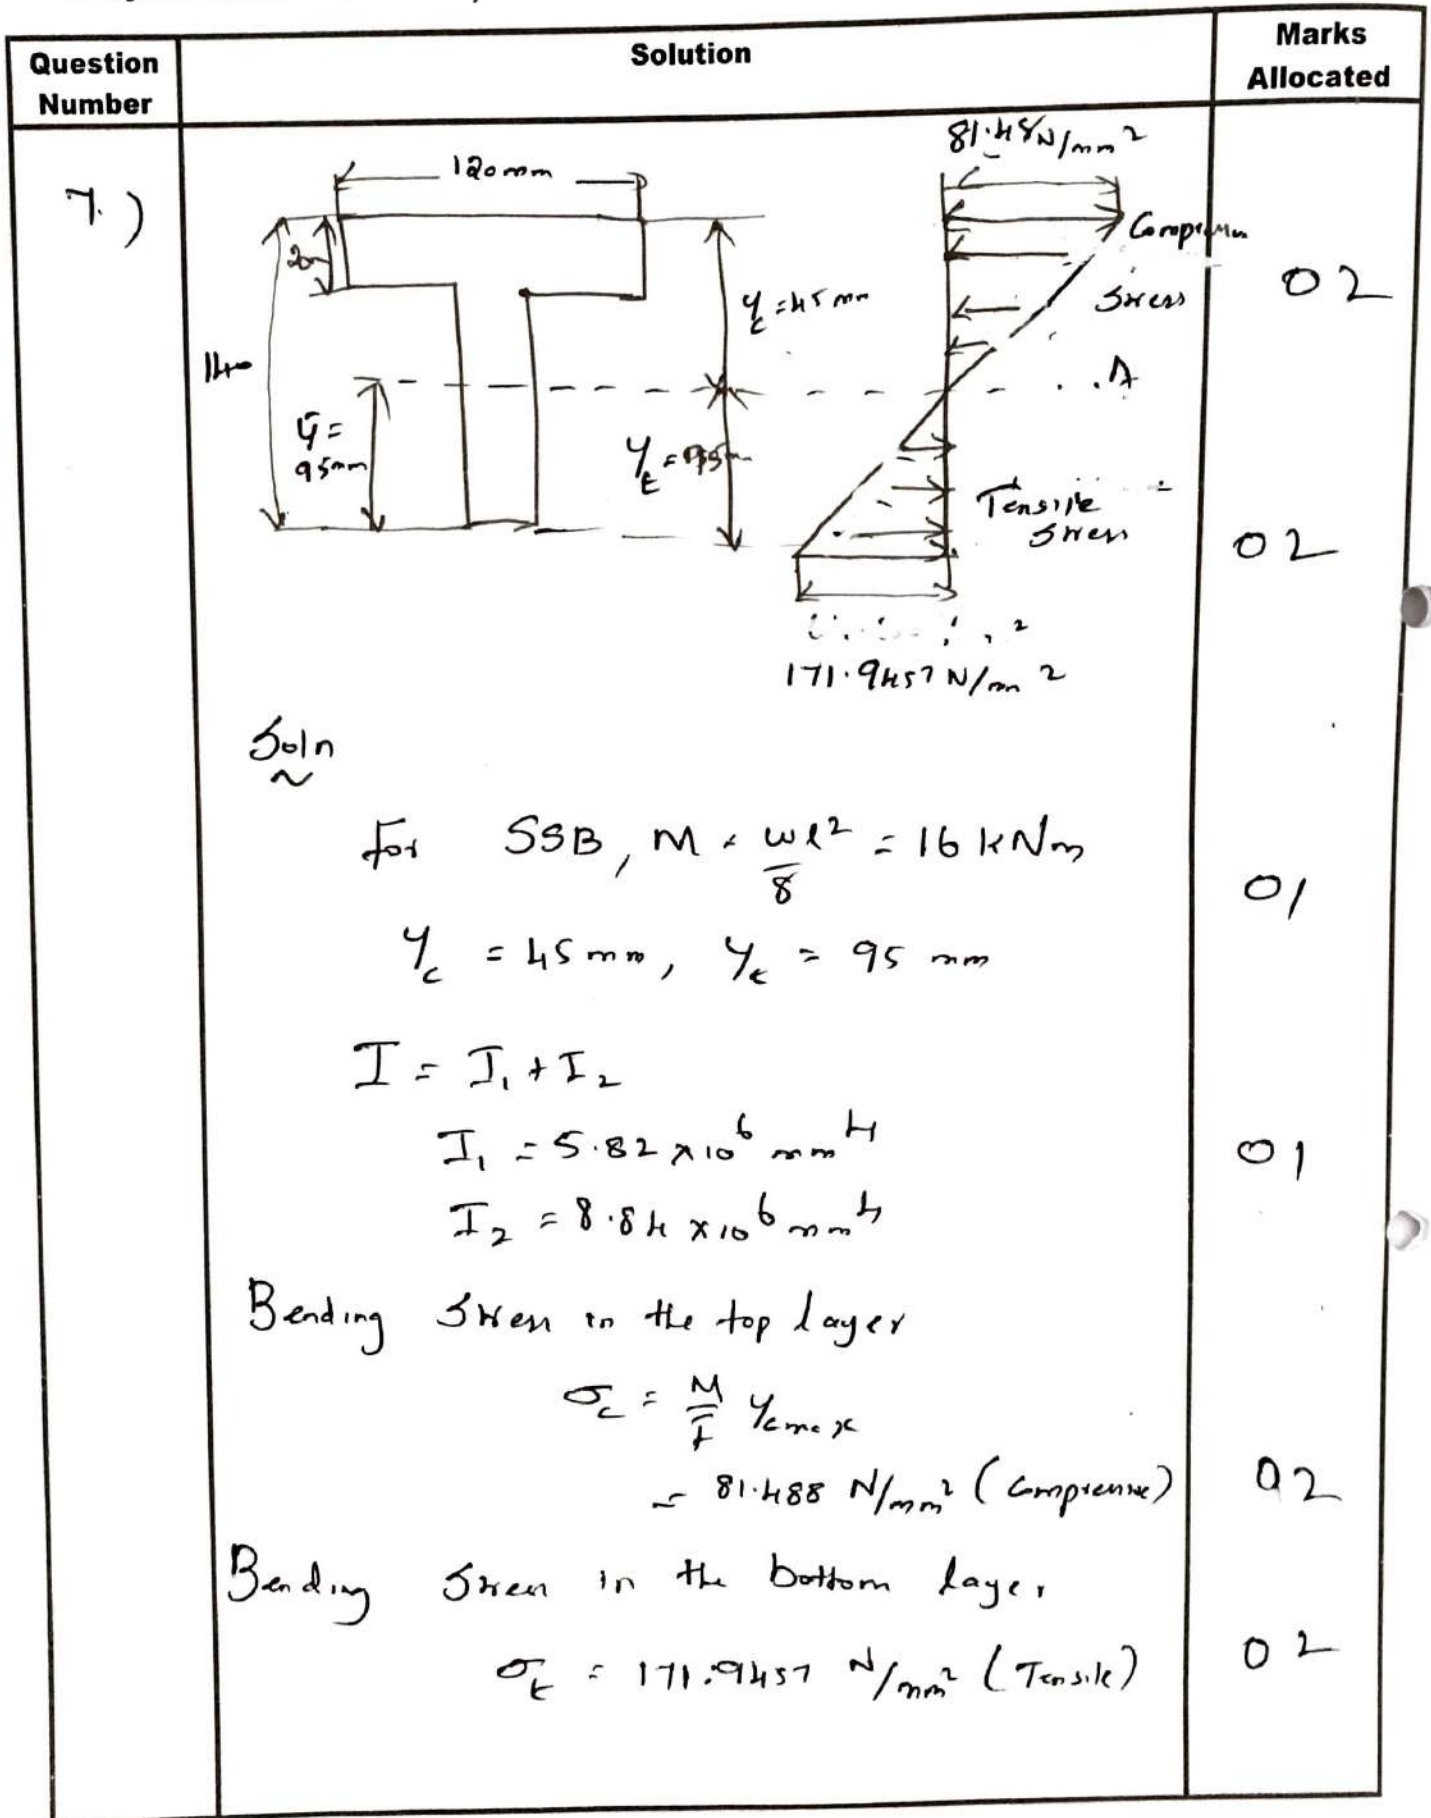 Question Number
Solution
Marks Allocated
7.)
120mm
81.48N/mm²
Stress
02
y_c = 45 mm
140
A
ȳ = 95mm
Tensile Stress
02
171.9457 N/mm²
Soln
for SSB, M = wl²/8 = 16 kNm
01
y_c = 45 mm, y_t = 95 mm
I = I₁ + I₂
I₁ = 5.82 x 10⁶ mm⁴
01
I₂ = 8.84 x 10⁶ mm⁴
Bending Stress in the top layer
σ_c = M/I y_cmax
= 81.488 N/mm² (Compressive)
02
Bending Stress in the bottom layer
σ_t = 171.9457 N/mm² (Tensile)
02